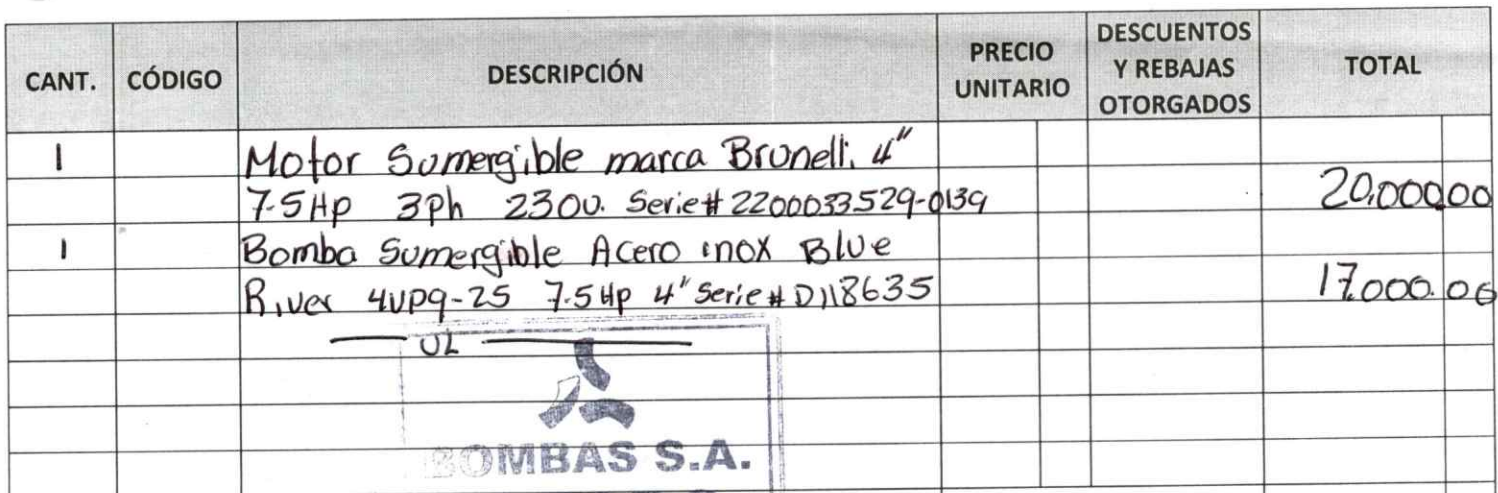 CANT. CÓDIGO DESCRIPCIÓN PRECIO UNITARIO DESCUENTOS Y REBAJAS OTORGADOS TOTAL
1 Motor Sumergible marca Brunelli. 4"
7.5Hp 3Ph 230v. Serie# 2200033529-0139 20,000.00
1 Bomba Sumergible Acero inox Blue
River 4VP9-25 7.5Hp 4" Serie# D118635 17.000.00
UL
BOMBAS S.A.